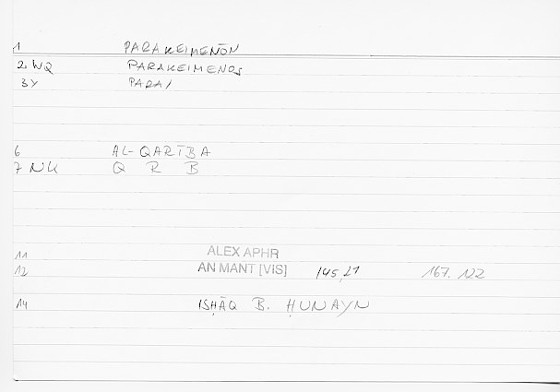 1 PARAKEIMENŌN
2 WQ PARAKEIMENOS
3 Y PARA/
6 AL-QARĪBA
7 NK Q R B
11 ALEX APHR
12 AN MANT [VIS] 145,21 167.
14 ISḤĀQ B. ḤUNAYN